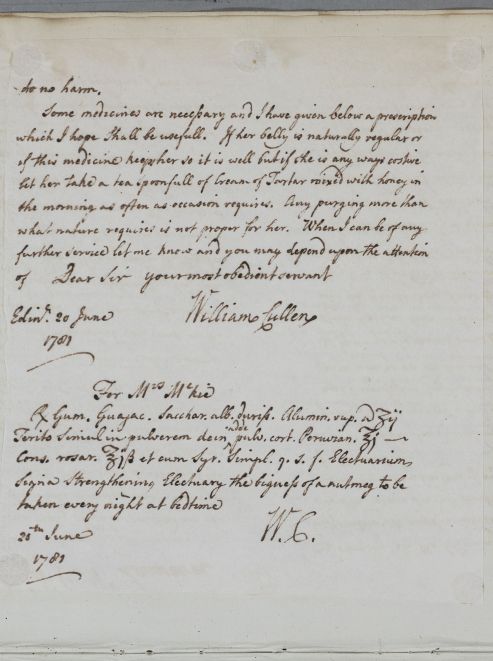 do no harm.
Some medicines are necessary and I have given below a prescription
which I hope shall be usefull. If her belly is naturally regular or
if this medicine keeps her so it is well but if she is any ways costive
let her take a tea spoonfull of Cream of Tartar mixed with honey in
the morning as often as occasion requires. Any purging more than
what nature requires is not proper for her. When I can be of any
further service let me know and you may depend upon the attention
of Dear Sir your most obedient servant
William Cullen
Edinr. 20 June
1781
For Mrs McKie
℞ Gum. Guajac. Sacchar. alb. duriss. Alumin. rup. a ʒij
Terito Simul in pulverem dein adde pulv. cort. Peruvian. ℥j
Cons. rosar. ℥jß et cum Syr. Simpl. q. s. f. Electuarium
Signa Strengthening Electuary the bigness of a nutmeg to be
taken every night at bedtime
W. C.
June
1781